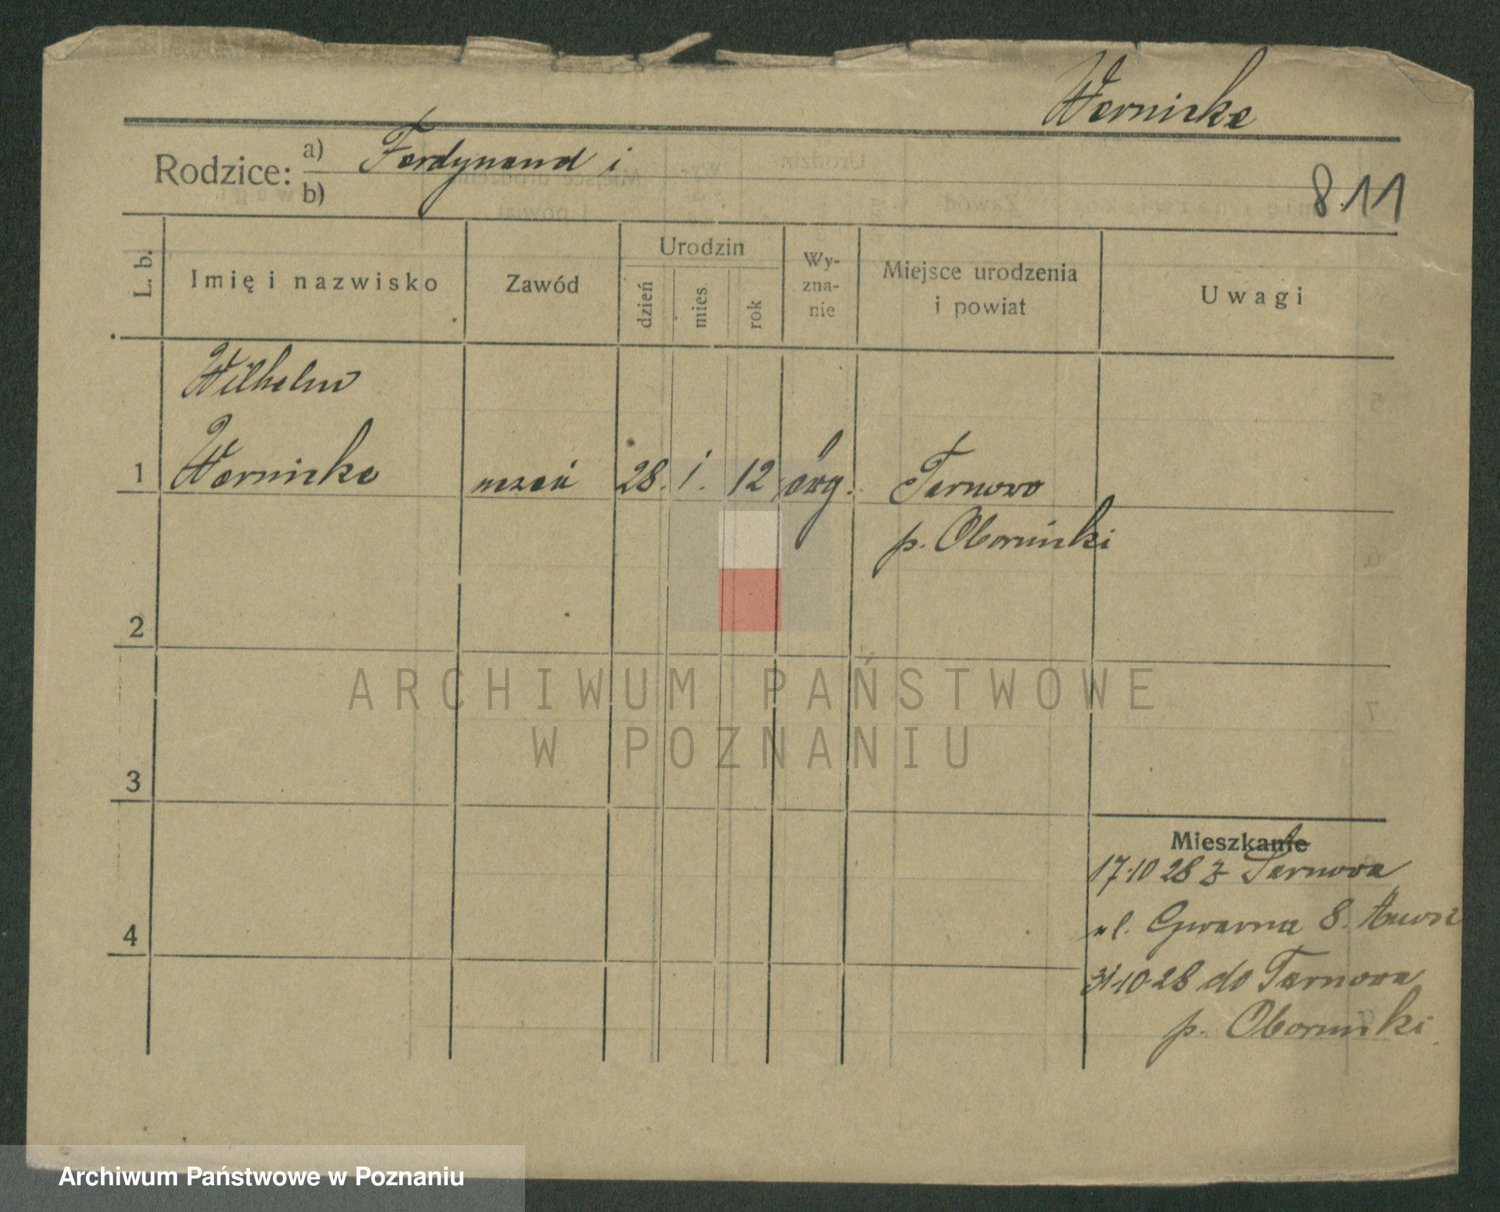 Wernicke
Rodzice: a) Ferdynand i
b)
8.11
L. b. Imię i nazwisko Zawód Urodzin dzień mies. rok Wy-zna-nie Miejsce urodzenia i powiat Uwagi
Wilhelm
1 Wernicke uczeń 28. 1. 12 Tarnowo
p. Obornicki
2
3
4
Mieszkanie
17.10 28 z Tarnowa
ul. Gwarna 8.
31.10.28 do Tarnowa
p. Obornicki
ARCHIWUM PAŃSTWOWE
W POZNANIU
Archiwum Państwowe w Poznaniu